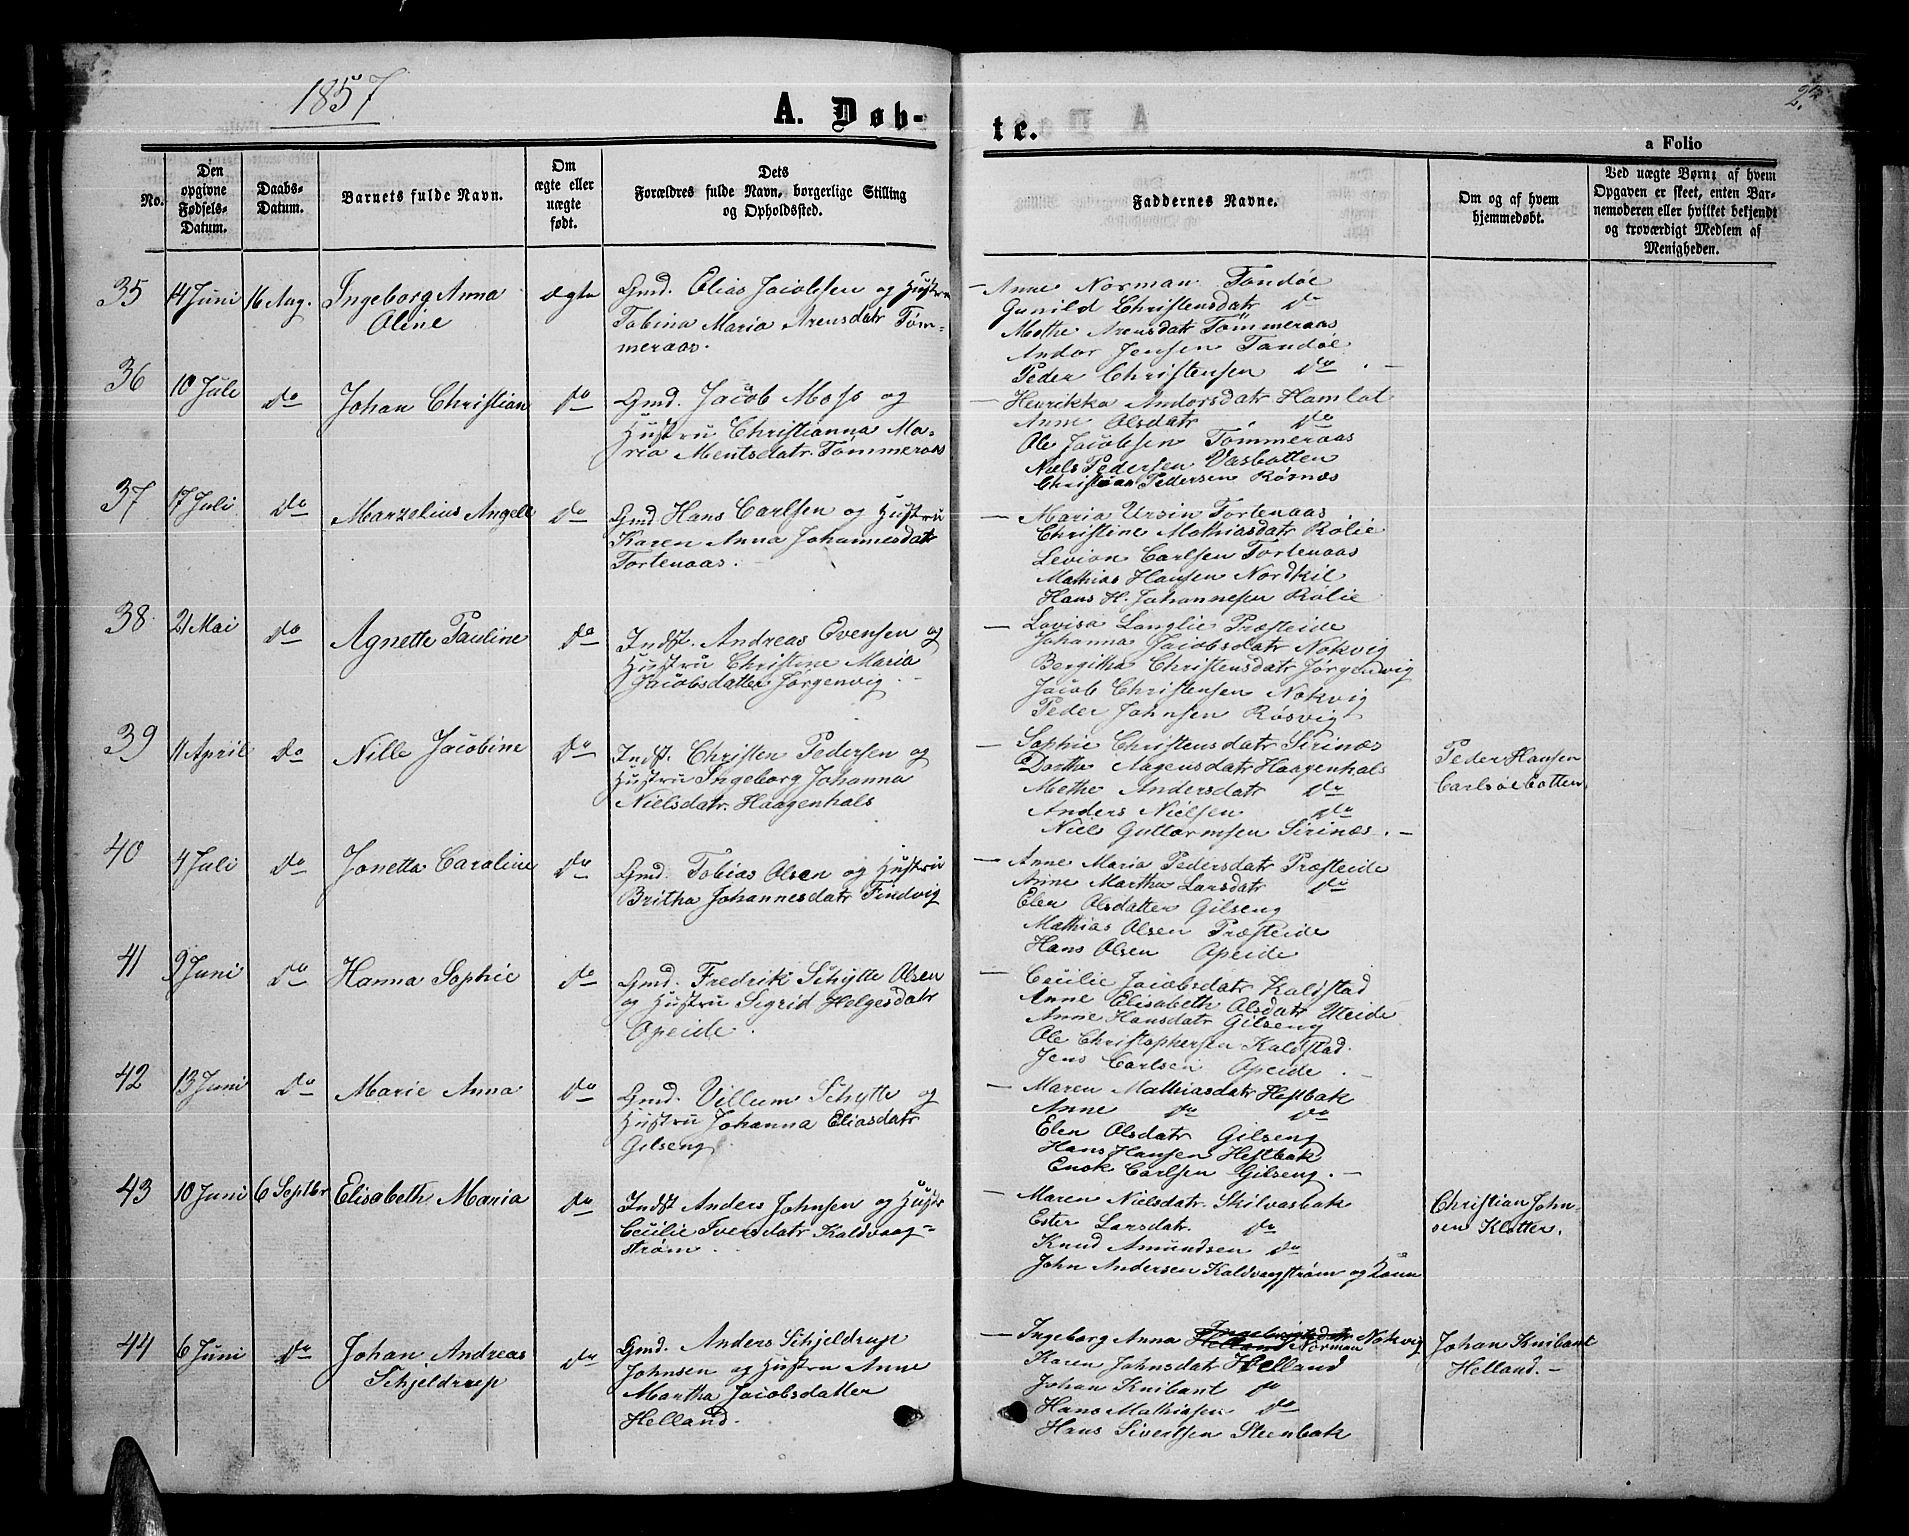 1857
A. Døb-
te.
2
a Folio
No.
Den
opgivne
Fødsels-
Datum.
Daabs-
Datum.
Barnets fulde Navn.
Om
ægte eller
uægte
født.
Dets
Forældres fulde Navn, borgerlige Stilling
og Opholdssted.
Faddernes Navne.
Om og af hvem
hjemmedøbt.
Ved uægte Børn: af hvem
Opgaven er skeet, enten Bar-
nemoderen eller hvilket bekjendt
og troværdigt Medlem af
Menigheden.
35
14 Juni
16 Aug.
Ingeborg Anna
Oline
ægte
Gmd. Elias Jacobsen og Hustru
Tobina Maria Arensdatr Töm-
meraas.
— Anne Norman Tandöe
Gunild Christensdatr do
Methe Arensdatr Tömmeraas
Andor Jensen Tandöe
Peder Christensen do . —
36
10 Juli
do
Johan Christian
do
Gmd. Jacob Moss og
Hustru Christianna Ma-
ria Mentsdatr. Tömmeraas
— Henrikka Andorsdatr Hamlot
Anne Olsdatr do
Ole Jacobsen Tömmeraas
Niels Pedersen Vasbotten
Christian Pedersen Rösnæs
37
17 Juli
do
Marzelius Angell
do
Gmd. Hans Carlsen og Hustru
Karen Anna Johannesdatr
Tortenaas.
— Maria Ursin Tortenaas
Christine Mathiasdatr Rölie
Levion Carlsen Tortenaas
Mathias Hansen Nordkil
Hans H. Johannesen Rölie
38
21 Mai
do
Agnette Pauline
do
Indst. Andreas Evensen og
Hustru Christine Maria
Jacobsdatter Jörgenvig.
— Lovisa Langlie Præsteide
Johanna Jacobsdatr Nokvig
Bergitha Christensdatr Jörgenvig
Jacob Christensen Nokvig
Peder Johnsen Rösvig
39
11 April
do
Nille Jacobine
do
Indst. Christen Pedersen og
Hustru Ingeborg Johanna
Nielsdatr. Haagenhals
— Sophie Christensdatr Sirinæs
Dorthe Aagensdatr Haagenhals
Methe Andersdatr do
Anders Nielsen do
Niels Guttormsen Sirinæs. —
Peder Hansen
Carlsöebotten.
40
4 Juli
do
Jonetta Caroline
do
Gmd. Tobias Olsen og Hustru
Britha Johannesdatr Findvig
— Anne Maria Pedersdatr Præsteide
Anne Martha Larsdatr do
Elen Olsdatter Gilseng
Mathias Olsen Præsteide
Hans Olsen Opeide
41
9 Juni
do
Hanna Sophie
do
Gmd. Fredrik Schytte Olsen
og Hustru Sigrid Helgesdatr
Opeide.
— Cecilie Jacobsdatr Kaldstad
Anne Elisabeth Olsdatr Uleide
Anne Hansdatr Gilseng
Ole Christophersen Kaldstad.
Jens Carlsen Opeide . —
42
13 Juni
do
Marie Anna
do
Gmd. Villum Schytte og
Hustru Johanna Eliasdatr
Gilseng
— Maren Mathiasdatr Hestbak
Anne do do
Elen Olsdatr Gilseng
Hans Hansen Hestbak
Enok Carlsen Gilseng. —
43
10 Juni
6 Septbr
Elisabeth Maria
do
Indst Anders Johnsen og Hustr
Cecilie Iversdatr Kaldvaag-
ström.
— Maren Nielsdatr. Skilvasbak
Ester Larsdatr. do
Knud Amundsen do
John Andersen Kaldvaagström og Kone
Christian John-
sen Kletten.
44
6 Juni
do
Johan Andreas
Schjeldrup
do
Gmd. Anders Schjeldrup
Johnsen og Hustru Anne
Martha Jacobsdatter
Helland.
— Ingeborg Anna Norman Nokvig
Karen Johnsdatr Helland
Johan Knibant do
Hans Mathisen do
Hans Sivertsen Steenbak
Johan Knibant
Helland. —